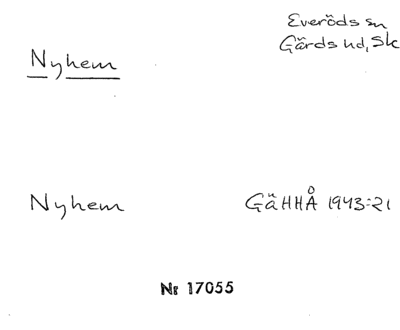 Everöds sn
Nyhem
Gärds hd, Sk
Nyhem GäHHÅ 1943:21
Nr 17055